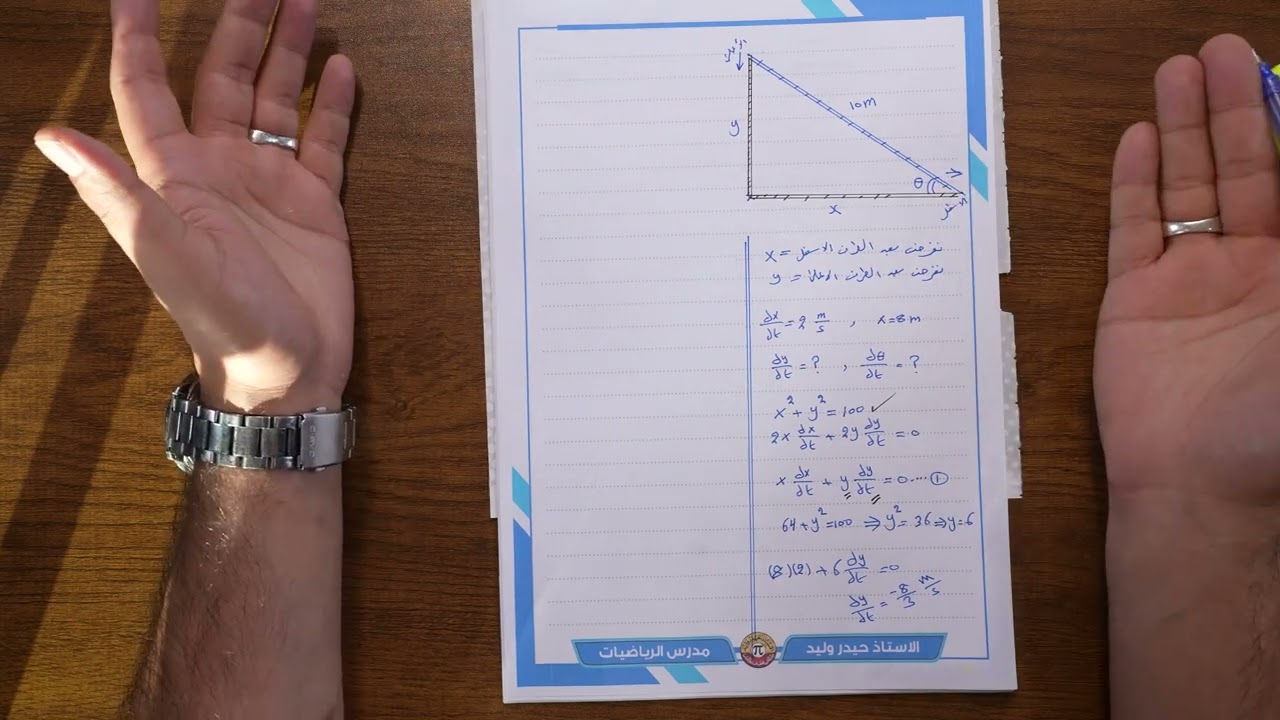 10m
y
θ
x
نفرض بعد الطرف الاسفل = x
نفرض بعد الطرف الاعلى = y
dx/dt = 2 m/s , x=8m
dy/dt = ? , dθ/dt = ?
x² + y² = 100 ✓
2x dx/dt + 2y dy/dt = 0
x dx/dt + y dy/dt = 0 .... ①
64 + y² = 100 ⇒ y² = 36 ⇒ y = 6
(8)(2) + 6 dy/dt = 0
dy/dt = -8/3 m/s
الاستاذ حيدر وليد π مدرس الرياضيات